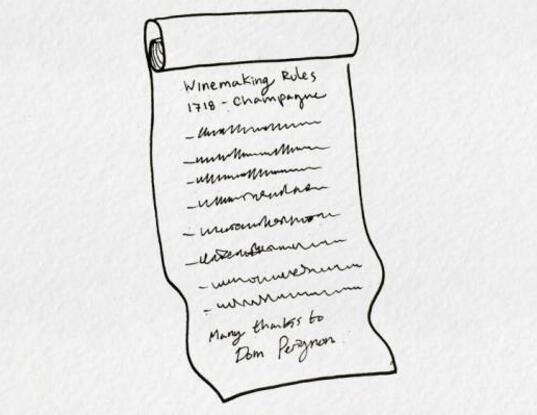 Winemaking Rules
1718 - Champagne
Many thanks to
Dom Perignon